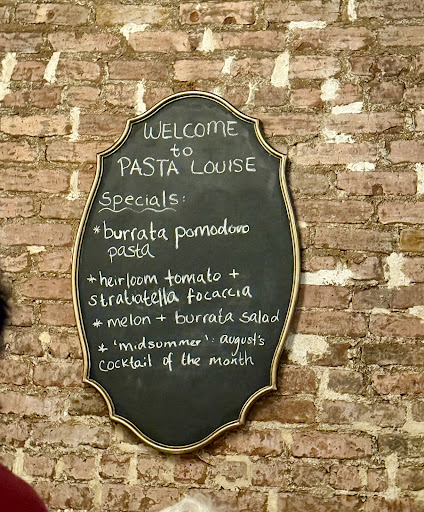 WELCOME
to
PASTA LOUISE
Specials:
* burrata pomodoro
pasta
* heirloom tomato +
stratiatella focaccia
* melon + burrata salad
* 'midsummer': august's
cocktail of the month